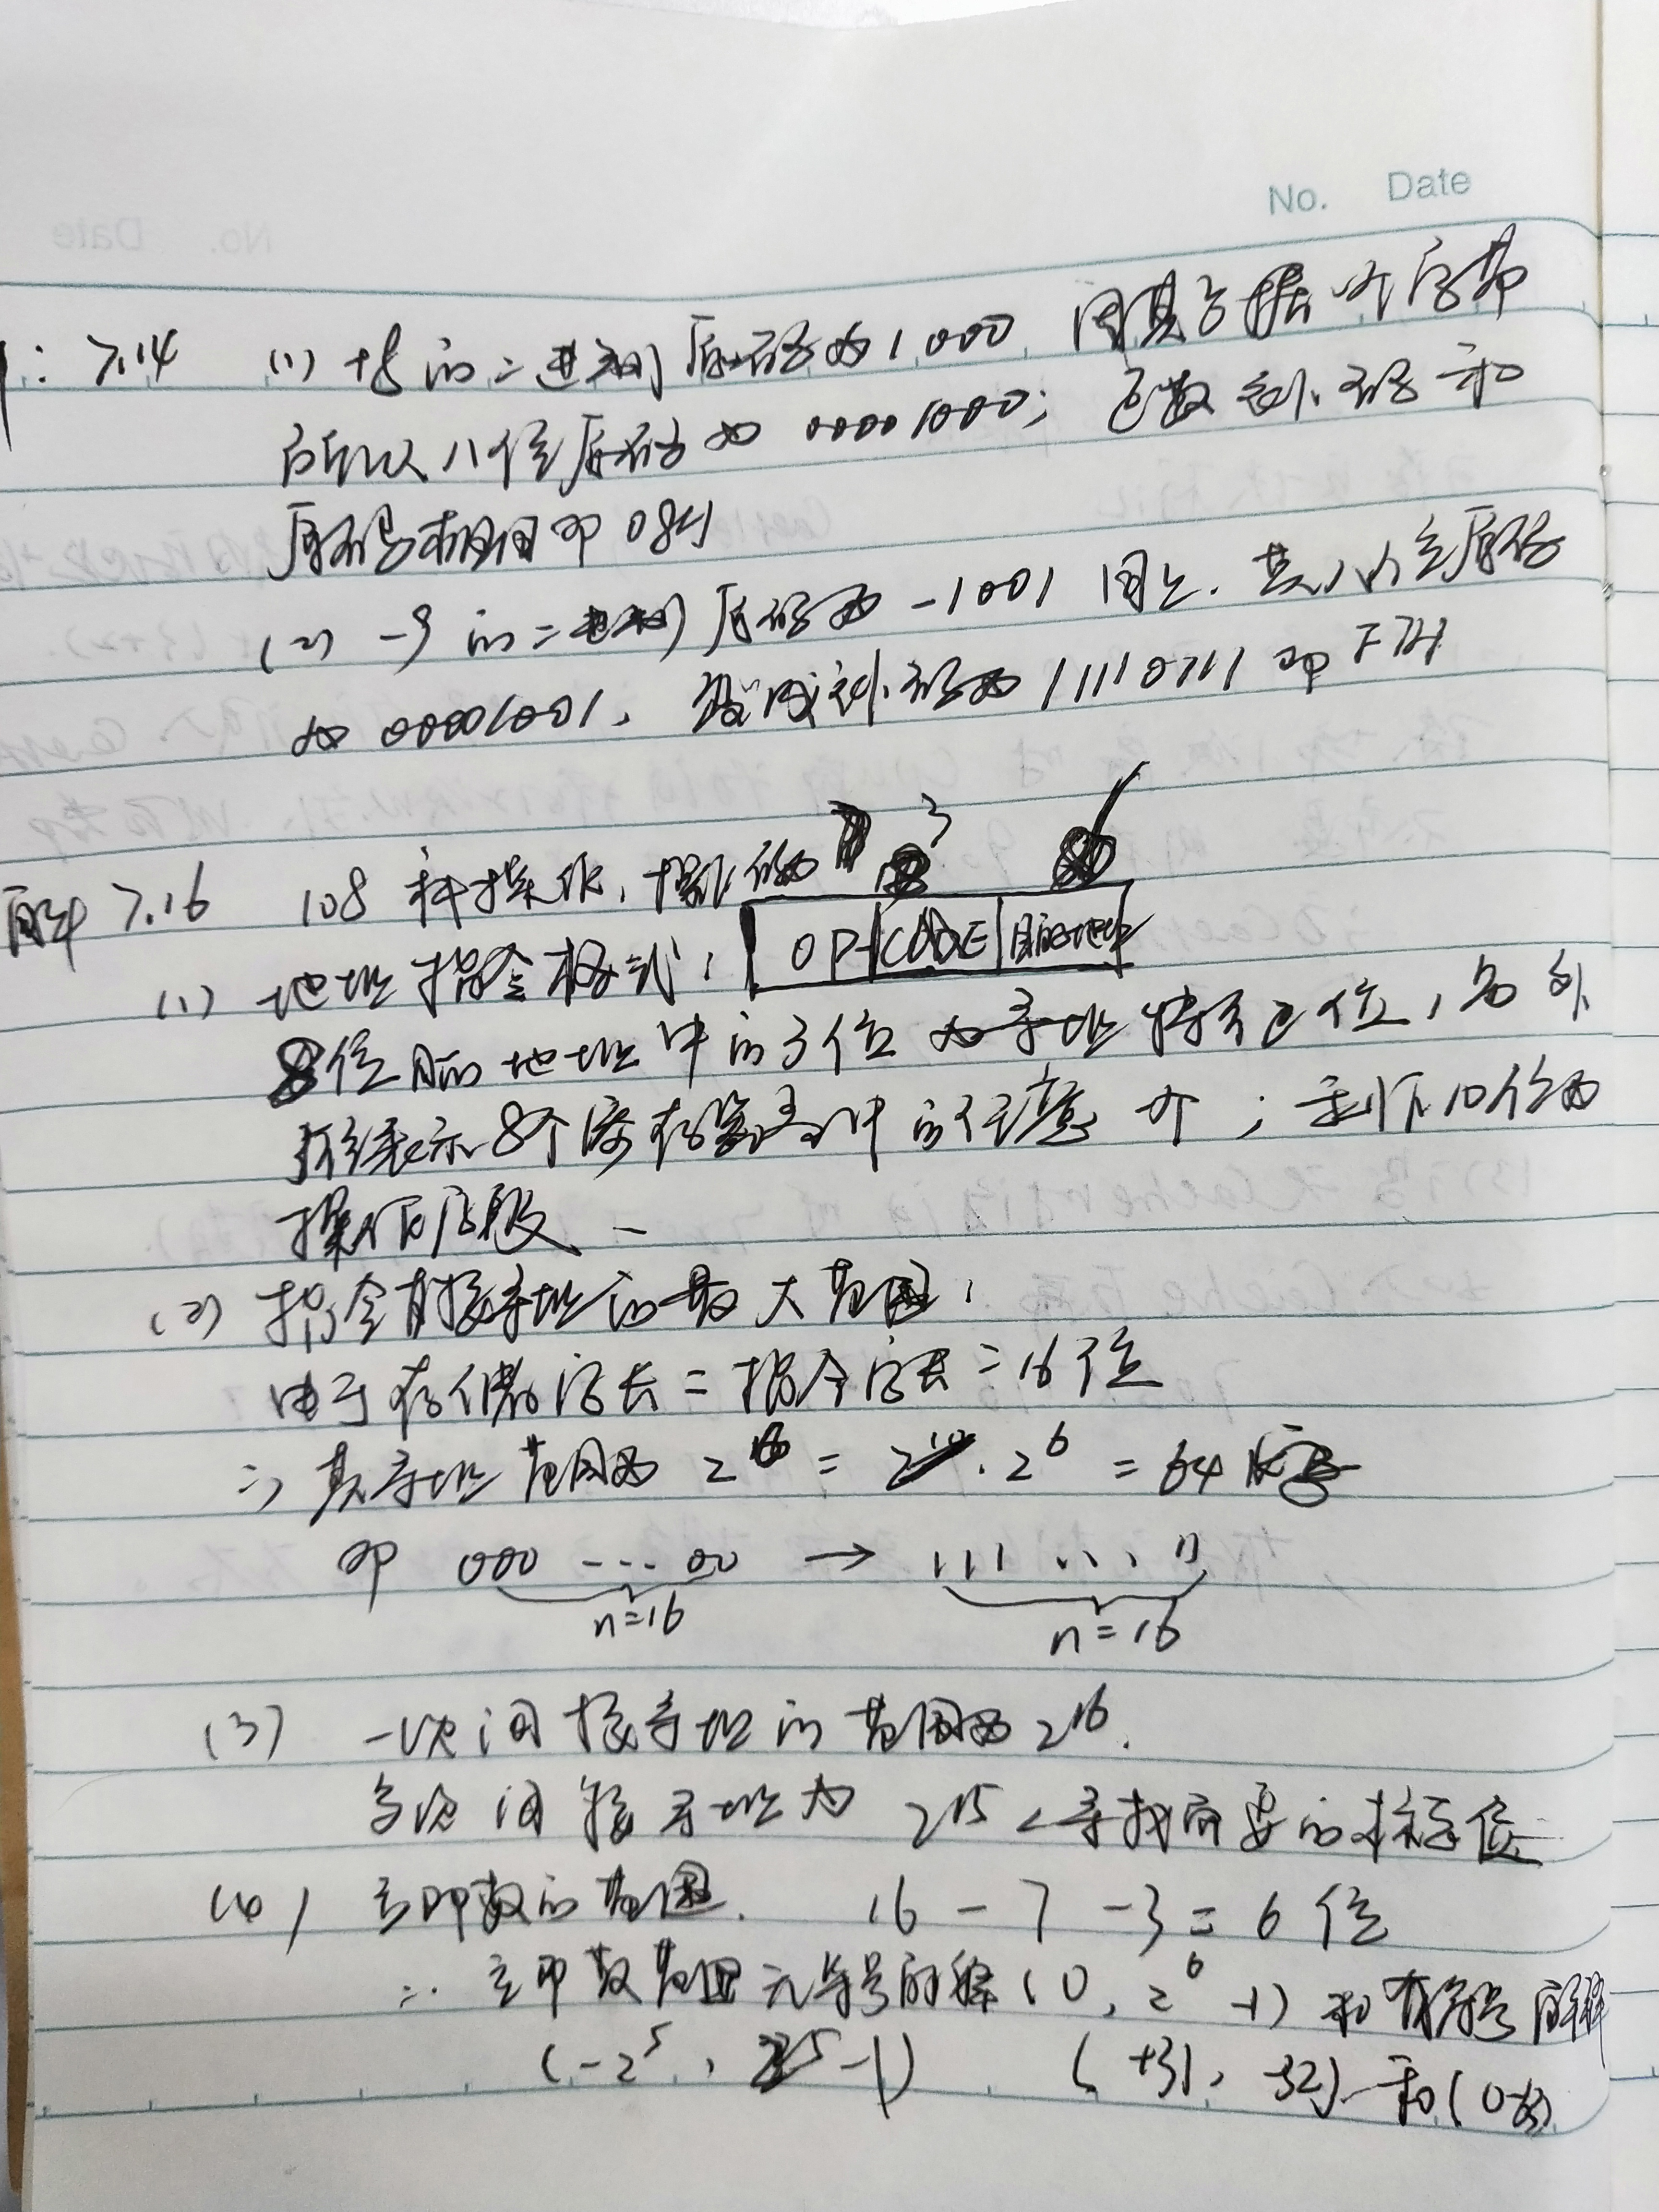 No. Date
7.14 (1) +8 的二进制原码为 1000, 因其占据一个字节
所以八位原码为 00001000; 正数补码和
原码相同即 08H
(2) -9 的二进制原码为 -1001 同上. 其八位原码
为 00001001, 补码为 11110111 即 F7H
解 7.16 108 种操作, 操作码 3
(1) 一地址指令格式: OP CODE 目的地址
8位目的地址中的3位为寻址特征位, 另外
表示8个寄存器中的任意一个; 剩下10位为
操作码段
(2) 指令直接寻址的最大范围:
由于存储字长 = 指令字长 = 16位
∴ 其寻址范围为 2^16 = 2^10 · 2^6 = 64K
即 000 --- 00 → 111 ... 11
n=16 n=16
(3) 一次间接寻址的范围为 2^16.
多次间接寻址为 2^15 寻找需要的标志位
(4) 立即数的范围. 16 - 7 - 3 = 6 位
∴ 立即数范围无符号解释 (0, 2^6 -1) 和 有符号解释
(-2^5, 2^5-1) (+31, -32) 和 (0-63)